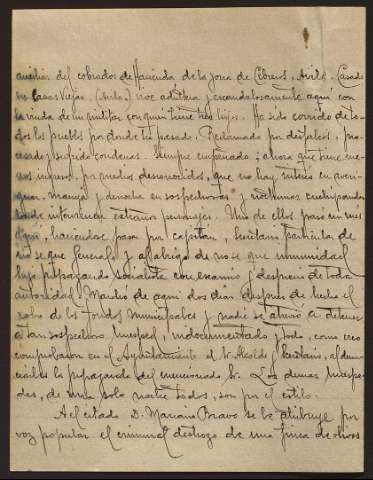 auxiliar del cobrador de Hacienda de la zona de Cebreros, Avila. Casado
en Casas Viejas, (Avila) vive adultera y escandalosamente aquí con
la viuda de un militar con quien tiene tres hijos. Ha sido corrido de to-
dos los pueblos por donde ha pasado. Reclamado por desfalcos, pro-
cesado y sufrido condenas. Siempre empeñado; ahora que tiene
ingresos, por medios desconocidos, que no hay interés en averi-
guar, maneja y derrocha en sospechosas y nocturnas
de extraños personajes. Uno de ellos paso un mes
aquí, haciendose pasar por capitan, secretario particular de
no se que General y al abrigo de no se que inmunidad
hizo propaganda socialista con escarnio y desprecio de toda
autoridad. Marchó de aqui dos dias despues de hecho el
robo de los fondos municipales y nadie se atrevió a detener
a tan sospechoso huesped, indocumentado y todo, como creo
comprobaron en el Ayuntamiento el Sr. Alcalde y Secretario, al denun-
ciarles la propaganda del mencionado Sr. Los demas huespe-
des, de una sola noche todos, son por el estilo.
Al citado D. Mariano Bravo se le atribuye por
voz popular el criminal destrozo de una finca de olivos